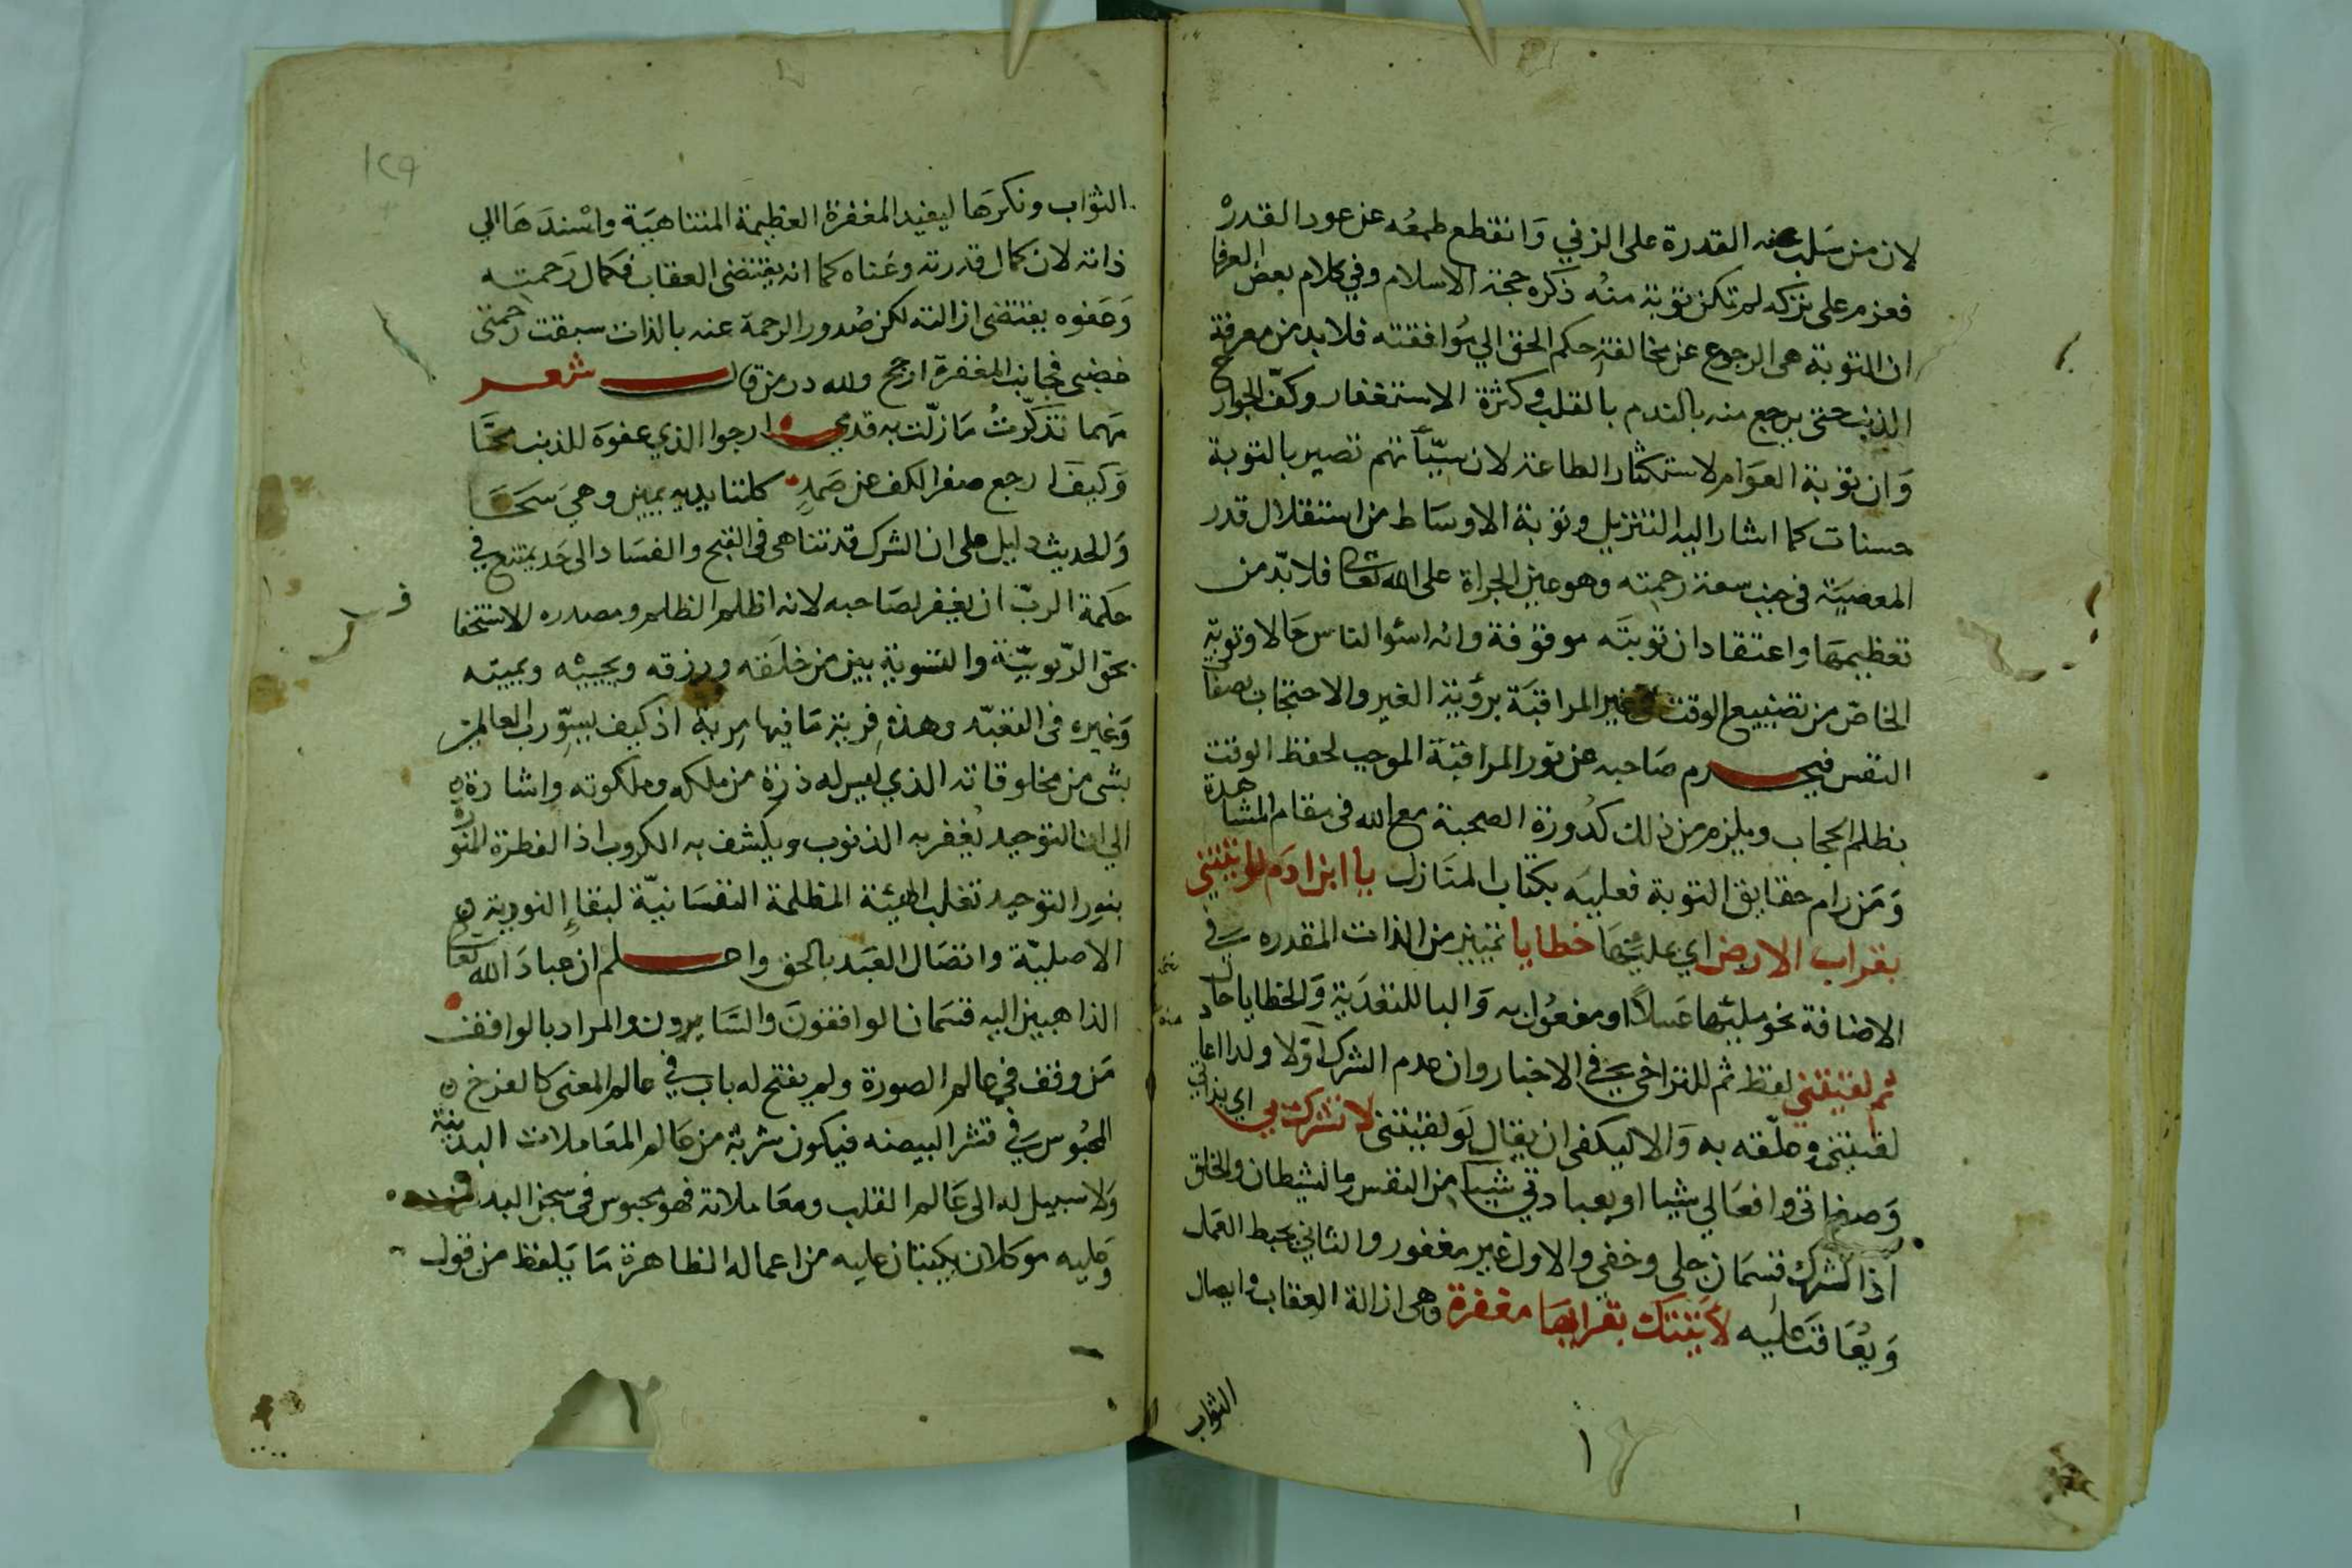 لان من سلب عنه القدرة على الزني وانقطع طمعه عن عود القدرة
فعزم على تركه لم تكن توبة منه ذكره حجة الاسلام وفي كلام بعض العرفا
ان التوبة هي الرجوع عن مخالفة حكم الحق الي موافقته فلا بد من معرفة
الذنب حتى يرجع منه بالندم بالقلب وكثرة الاستغفار وكف الجوارح
وان توبة العوام لاستكثار الطاعة لان سيئاتهم تصير بالتوبة
حسنات كما اشار اليه التنزيل وتوبة الاوساط من استقلال قدر
المعصية في جنب سعة رحمته وهو عين الجراة على الله تعالى فلا بد من
تعظيمها واعتقاد ان توبته موقوفة وانه اسئوا الناس حالا وتوبة
الخاص من تضييع الوقت في غير المراقبة برؤية الغير والاحتجاب بصفات
النفس فيحرم صاحبه عن نور المراقبة الموجب لحفظ الوقت
بظلم الحجاب ويلزم من ذلك كدورة الصحبة مع الله في مقام المشاهدة
ومن رام حقايق التوبة فعليه بكتاب المنازل يا ابن ادم لو اتيتني
بقراب الارض اي عليها خطايا تمييز من الذات المقدره في
الاضافة نحو مليها عسلا او مفعول به والبا للتعدية والخطايا حال
ثم لقيتني لفظ ثم للتراخي في الاخبار وان عدم الشرك اولا ولذا اعا
لقيتني وعلقه به والا ليكفى ان يقال لو لقيتني لا تشرك بي اي بذاتي
وصفاتي وافعالي شيا او بعبادتي شيئا من النفس والشيطان والخلق
اذ الشرك قسمان جلى وخفي والاول غير مغفور والثاني يحبط العمل
ويعاقب عليه لأتيتك بقرابها مغفرة وهى ازالة العقاب وايصال
الثواب
١٢٩
الثواب ونكرها ليفيد المغفرة العظيمة المتناهية واسندها الي
ذاته لان كمال قدرته وغناه كما انه يقتضى العقاب فكمال رحمته
وعفوه يقتضى ازالته لكن صدور الرحمة عنه بالذات سبقت رحمتى
غضبى فجانب المغفرة ارجح ولله در من قال شعر
مهما تذكرت ما زلت به قدمي ارجوا الذي عفوه للذنب محا
وكيف ارجع صفر الكف عن صمد كلتا يديه يمين وهي سحا
والحديث دليل على ان الشرك قد تناهى في القبح والفساد الى حد يمتنع في
حكمة الرب ان يغفر لصاحبه لانه اظلم الظلم ومصدره الاستخفا
بحق الربوبية والتسوية بين من خلقه ورزقه ويحييه ويميته
وغيره في التعبد وهذه فرية ما فيها مرية اذ كيف يسور رب العالمين
بشى من مخلوقاته الذي ليس له ذرة من ملكه وملكوته واشارة
الي ان التوحيد يغفر به الذنوب ويكشف به الكروب اذ الفطرة المنورة
بنور التوحيد تغلب الهيئة المظلمة النفسانية لبقاء النورية
الاصلية واتصال العبد بالحق واعلم ان عباد الله تعالى
الذاهبين اليه قسمان الواقفون والسايرون والمراد بالواقف
من وقف في عالم الصورة ولم يفتح له باب في عالم المعنى كالفرخ
المحبوس في قشر البيضه فيكون شربة من عالم المعاملات البدنية
ولا سبيل له الى عالم القلب ومعاملاته فهو محبوس في سجن البدن
وعليه موكلان يكتبان عليه من اعماله الظاهرة ما يلفظ من قول